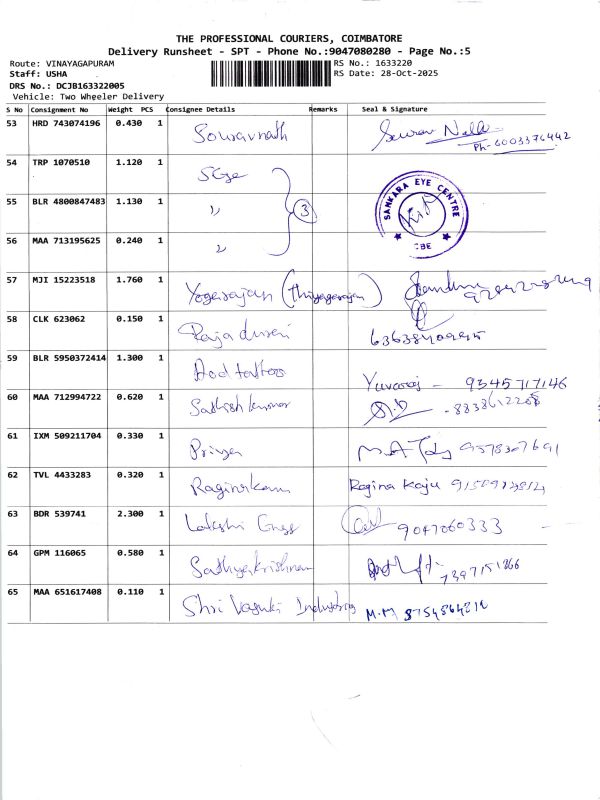 THE PROFESSIONAL COURIERS, COIMBATORE
Delivery Runsheet - SPT - Phone No.:9047080280 - Page No.:5
Route: VINAYAGAPURAM
RS No.: 1633220
Staff: USHA
RS Date: 28-Oct-2025
DRS No.: DCJB163322005
Vehicle: Two Wheeler Delivery
S No Consignment No Weight PCS Consignee Details Remarks Seal & Signature
53 HRD 743074196 0.430 1 Souravnath Sourav Ph-6003376442
54 TRP 1070510 1.120 1
55 BLR 4800847483 1.130 1 " 3 SANKARA EYE CENTRE CBE
56 MAA 713195625 0.240 1 "
57 MJI 15223518 1.760 1 Yogarajan (Thiyagarajan)
58 CLK 623062 0.150 1 Raja durai
59 BLR 5950372414 1.300 1 Aod tattoo Yuvaraj - 9345717146
60 MAA 712994722 0.620 1 Sathish kumar - 8838612208
61 IXM 509211704 0.330 1 Priya 9578307691
62 TVL 4433283 0.320 1 Ragini Raju
63 BDR 539741 2.300 1 Lakshi 9047060333
64 GPM 116065 0.580 1 Sathyakrishnan 7397151866
65 MAA 651617408 0.110 1 Shri Vasuki Industries M.M 8754564810